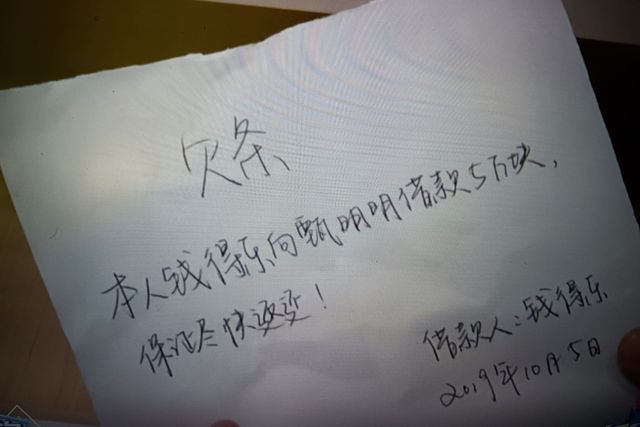 欠条
本人钱得乐向甄明明借款5万块,
保证尽快!
借款人:钱得乐
2019年10月5日